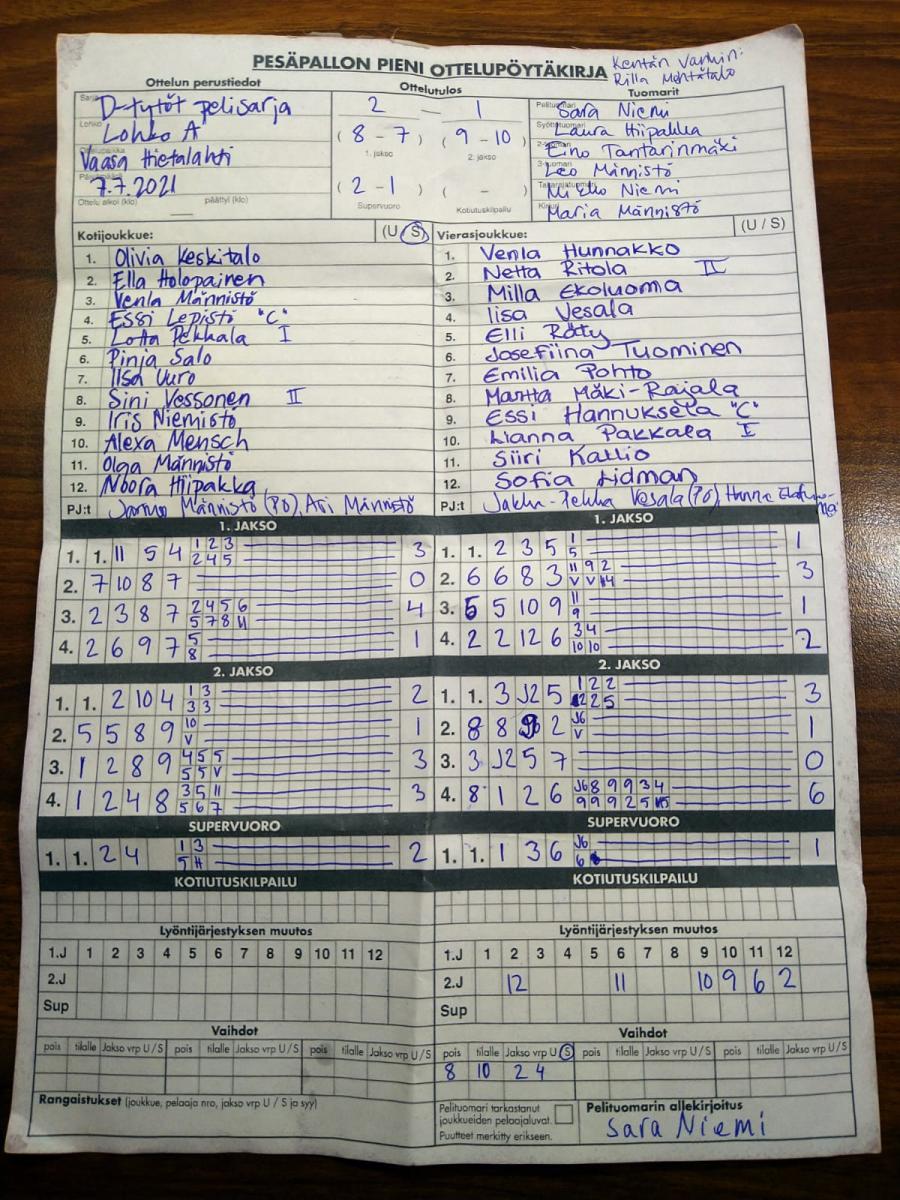 PESÄPALLON PIENI OTTELUPÖYTÄKIRJA
Kentän Vanhin:
Rilla
Ottelun perustiedot
Ottelutulos
Tuomarit
Sarja D-tytöt pelisarja
Lohko Lohko A
Ottelupaikka Vaasa Hietalahti
Päivämäärä 7.7.2021
Ottelu alkoi (klo) päättyi (klo)
2 - 1
(8 - 7) (9 - 10)
1. jakso 2. jakso
(2 - 1) ( - )
Supervuoro Kotiutuskilpailu
Pelituomari Sara Niemi
Syöttötuomari Laura Hiipakka
2-tuomari Eino Tantarinmäki
3-tuomari Leo Männistö
Takarajatuomari Mikko Niemi
Kirjuri Maria Männistö
Kotijoukkue: (U/S)
1. Olivia Keskitalo
2. Ella Holopainen
3. Venla Männistö
4. Essi Lepistö "C"
5. Lotta Pekkala I
6. Pinja Salo
7. Iisa Vuro
8. Sini Vessonen II
9. Iris Niemistö
10. Alexa Mensch
11. Olga Männistö
12. Noora Hiipakka
PJ:t Jarmo Männistö (PÖ), Ari Männistö
Vierasjoukkue: (U / S)
1. Venla Hunnakko
2. Netta Ritola II
3. Milla Ekoluoma
4. Iisa Vesala
5. Elli Räty
6. Josefiina Tuominen
7. Emilia Pohto
8. Martta Mäki-Rajala
9. Essi Hannuksela "C"
10. Lianna Pakkala I
11. Siiri Kallio
12. Sofia Lidman
PJ:t Jukka-Pekka Vesala (PÖ), Hanna
1. JAKSO
1. 1. 11 5 4 1 2 3 3
2 4 5
2. 7 10 8 7 0
3. 2 3 8 7 2 4 5 6 4
5 7 8 11
4. 2 6 9 7 5 1
8
1. JAKSO
1. 1. 2 3 5 1 1
5
2. 6 6 8 3 11 9 2 3
V V
3. 5 5 10 9 11 1
9
4. 2 2 12 6 3 4 2
10 10
2. JAKSO
1. 1. 2 10 4 1 3 2
3 3
2. 5 5 8 9 10 1
V
3. 1 2 8 9 4 5 5 3
5 5 V
4. 1 2 4 8 3 5 11 3
5 6 7
2. JAKSO
1. 1. 3 J2 5 1 2 2 3
2 5
2. 8 8 9 2 J6 1
V
3. 3 J2 5 7 0
4. 8 1 2 6 J6 8 9 9 3 4 6
9 9 9 2 5
SUPERVUORO
1. 1. 2 4 1 3 2
5 H
SUPERVUORO
1. 1. 1 3 6 J6 1
6
KOTIUTUSKILPAILU
KOTIUTUSKILPAILU
Lyöntijärjestyksen muutos
1.J 1 2 3 4 5 6 7 8 9 10 11 12
2.J
Sup
Lyöntijärjestyksen muutos
1.J 1 2 3 4 5 6 7 8 9 10 11 12
2.J 12 11 10 9 6 2
Sup
Vaihdot
pois tilalle Jakso vrp U/S pois tilalle Jakso vrp U/S pois tilalle Jakso vrp U/S
Vaihdot
pois tilalle Jakso vrp U/S pois tilalle Jakso vrp U/S pois tilalle Jakso vrp U/S
8 10 2 4
Rangaistukset (joukkue, pelaaja nro, jakso vrp U / S ja syy)
Pelituomari tarkastanut
joukkueiden pelaajaluvat.
Puutteet merkitty erikseen.
Pelituomarin allekirjoitus
Sara Niemi